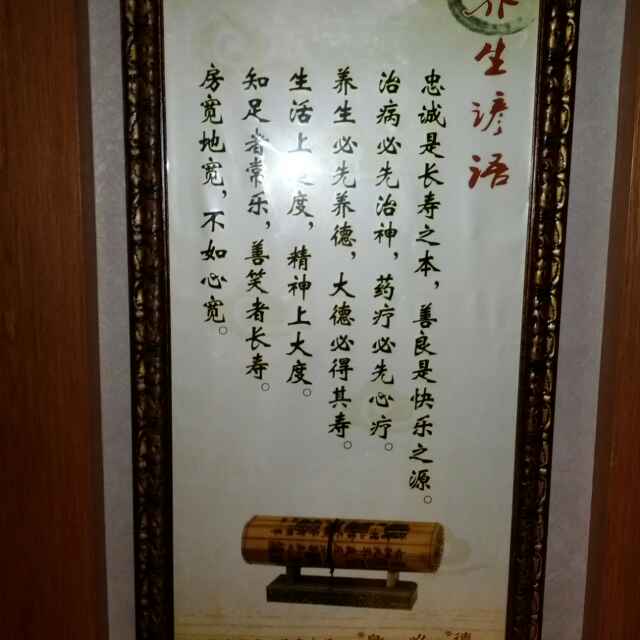 养生谚语
忠诚是长寿之本，善良是快乐之源。
治病必先治神，药疗必先心疗。
养生必先养德，大德必得其寿。
生活上大度，精神上大度。
知足者常乐，善笑者长寿。
房宽地宽，不如心宽。